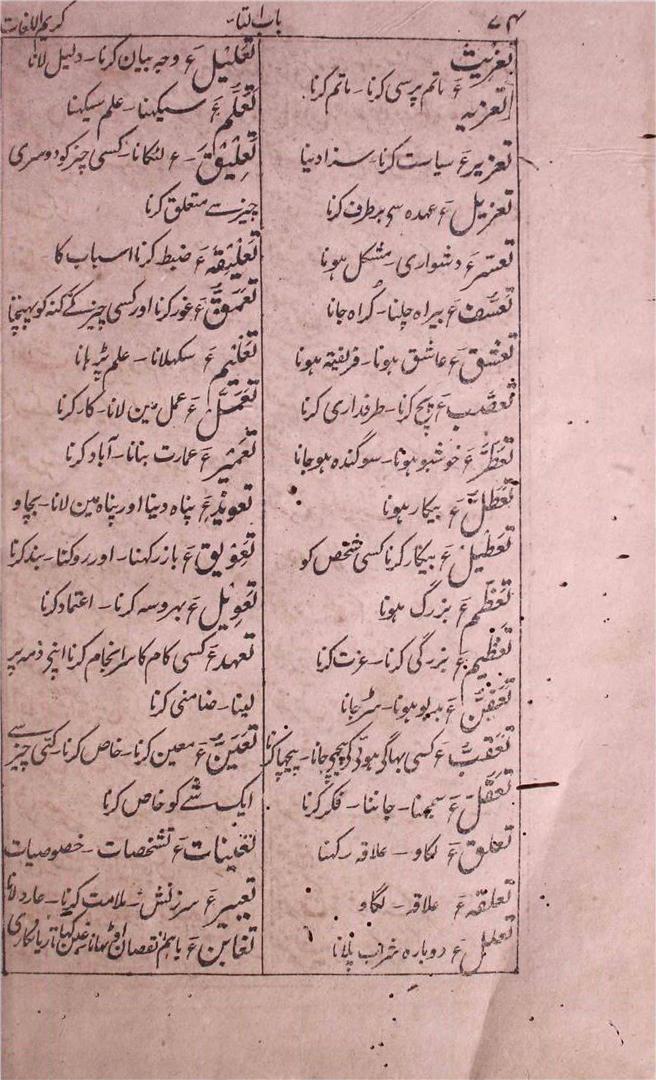 ۷۴ باب التا۔ کریم اللغات
تعزیت
تعزیہ ع ماتم پرسی کرنا۔ ماتم کرنا
تعزیر ع سیاست کرنا۔ سزا دینا
تعزیل ع عہدہ سی برطرف کرنا
تعسّر ع دشواری۔ مشکل ہونا
تعسّف ع بیراہ چلنا۔ گمراہ جانا
تعشّق ع عاشق ہونا۔ فریفتہ ہونا
تعصّب ع پچ کرنا۔ طرفداری کرنا
تعطّر ع خوشبو ہونا۔ سوگندہ ہوجانا
تعطّل ع بیکار ہونا
تعطیل ع بیکار کرنا کسی شخص کو
تعظّم ع بزرگ ہونا
تعظیم ع بزرگی کرنا۔ عزت کرنا
تعفّن ع بدبو ہونا۔ سڑجانا
تعقّب ع کسی بہاگی ہوئی کی پیچھے جانا۔ پیچہا کرنا
تعقّل ع سمجہنا۔ جاننا۔ فکر کرنا
تعلّق ع لگاو۔ علاقہ رکہنا
تعلقہ ع علاقہ۔ لگاو
تعلّل ع دوبارہ شراب پلانا
تعلیل ع وجہ بیان کرنا۔ دلیل لانا
تعلّم ع سیکہنا۔ علم سیکہنا
تعلیق۔ ع لٹکانا۔ کسی چیز کو دوسری
چیز سے متعلق کرنا
تعلیقہ ع ضبط کرنا اسباب کا
تعمّق ع غور کرنا اور کسی چیز کے کنہ کو پہنچنا
تعلیم ع سکہلانا۔ علم پڑہانا
تعمّل ع عمل مین لانا۔ کار کرنا
تعمیر ع عمارت بنانا۔ آباد کرنا
تعویذ ع پناہ دینا اور پناہ مین لانا۔ بچاو
تعویق ع باز رکہنا۔ اور روکنا۔ بند کرنا
تعویل ع بہروسہ کرنا۔ اعتماد کرنا
تعہد ع کسی کام کا سرانجام کرنا اپنی ذمہ پر
لینا۔ ضامنی کرنا
تعیّن ع معین کرنا۔ خاص کرنا۔ کئی چیز سے
ایک شے کو خاص کرنا
تعینات ع تشخصات۔ خصوصیات
تعییر ع سرزنش۔ ملامت کرنا۔ عار دلانا
تغابن ع باہم نقصان اوٹہانا